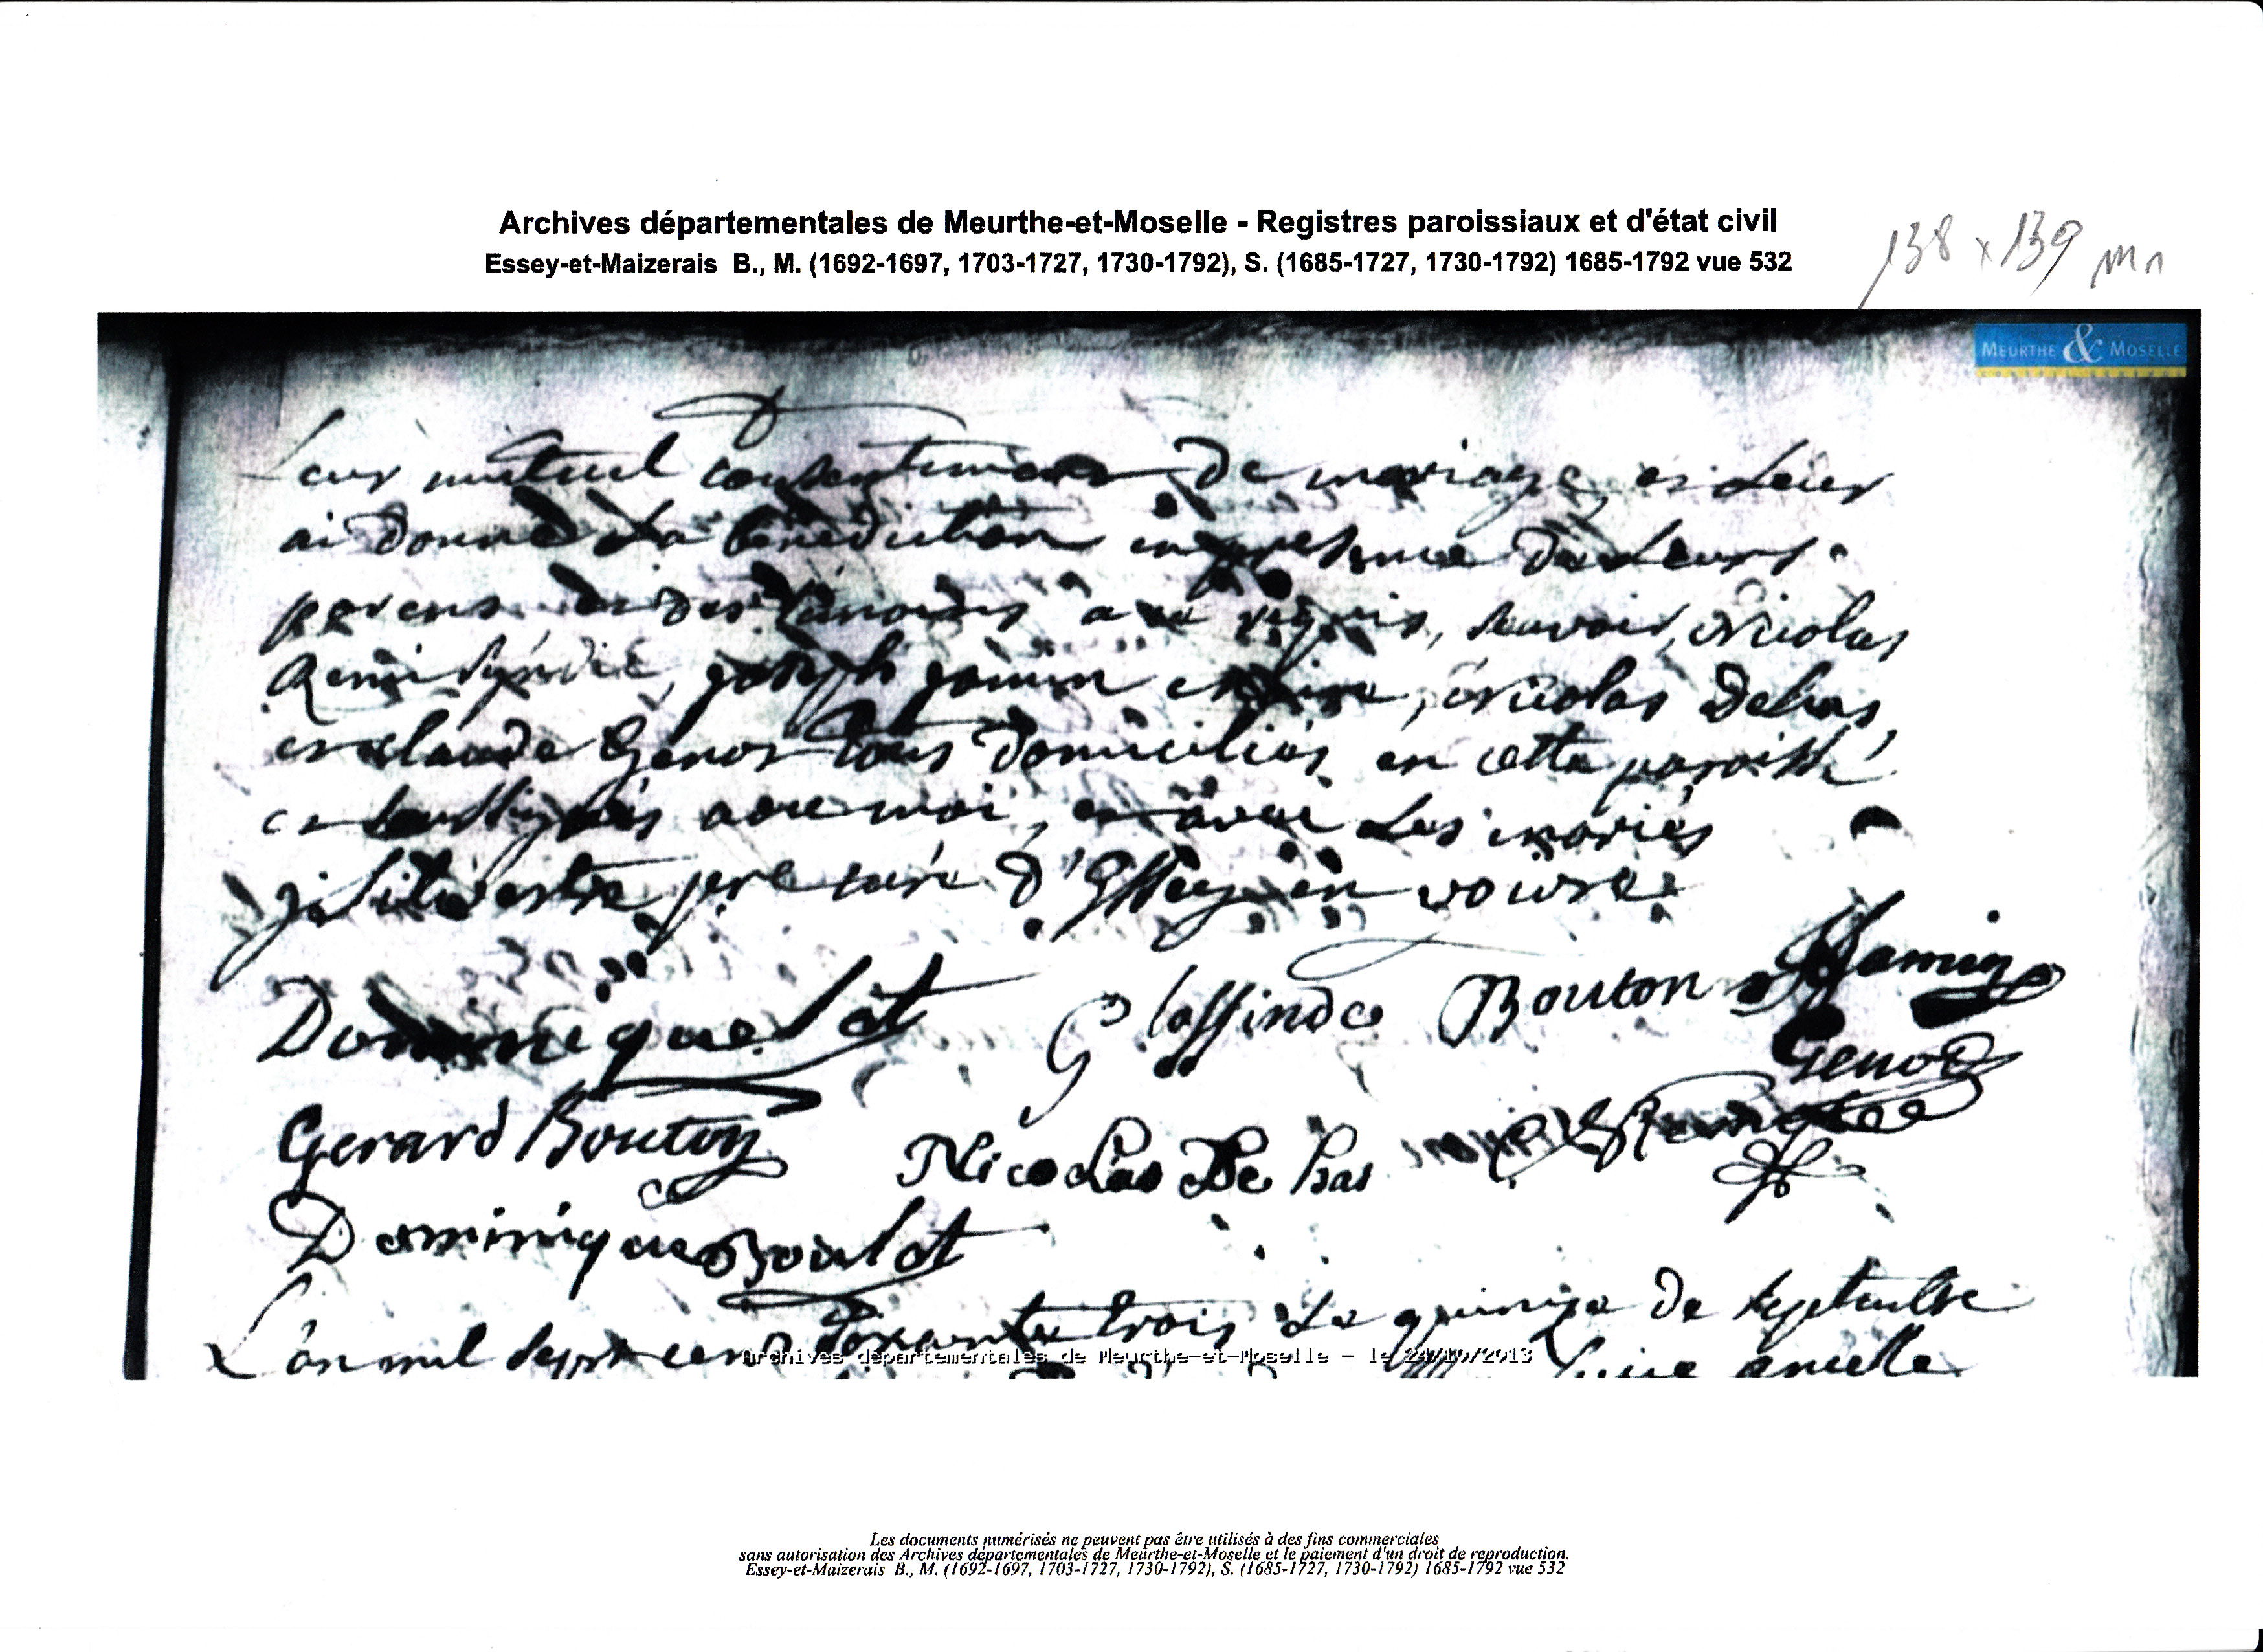 Archives départementales de Meurthe-et-Moselle - Registres paroissiaux et d'état civil
Essey-et-Maizerais B., M. (1692-1697, 1703-1727, 1730-1792), S. (1685-1727, 1730-1792) 1685-1792 vue 532
138 x 139 m1
MEURTHE & MOSELLE
Leur mutuel consentement De mariage, et Leur
ai donné La benediction en presence de Leurs
parens et des temoins a ce requis, scavoir, Nicolas
Remi sÿndic, joseph jamin, Nicolas Dehas,
et claude Genot tous domiciliés en cette paroisse
et soussignés avec moi, et avec Les mariés
prê curé d'Essey en voivre
Dominique
Glossinde Bouton
Jamin
Genot
Gerard Bouton
Nicolas De has
Dominique Boulot
L'an mil sept cens soixante trois Le quinze de septembre
Archives départementales de Meurthe-et-Moselle - le 24/10/2013
Les documents numérisés ne peuvent pas être utilisés à des fins commerciales
sans autorisation des Archives départementales de Meurthe-et-Moselle et le paiement d'un droit de reproduction.
Essey-et-Maizerais B., M. (1692-1697, 1703-1727, 1730-1792), S. (1685-1727, 1730-1792) 1685-1792 vue 532